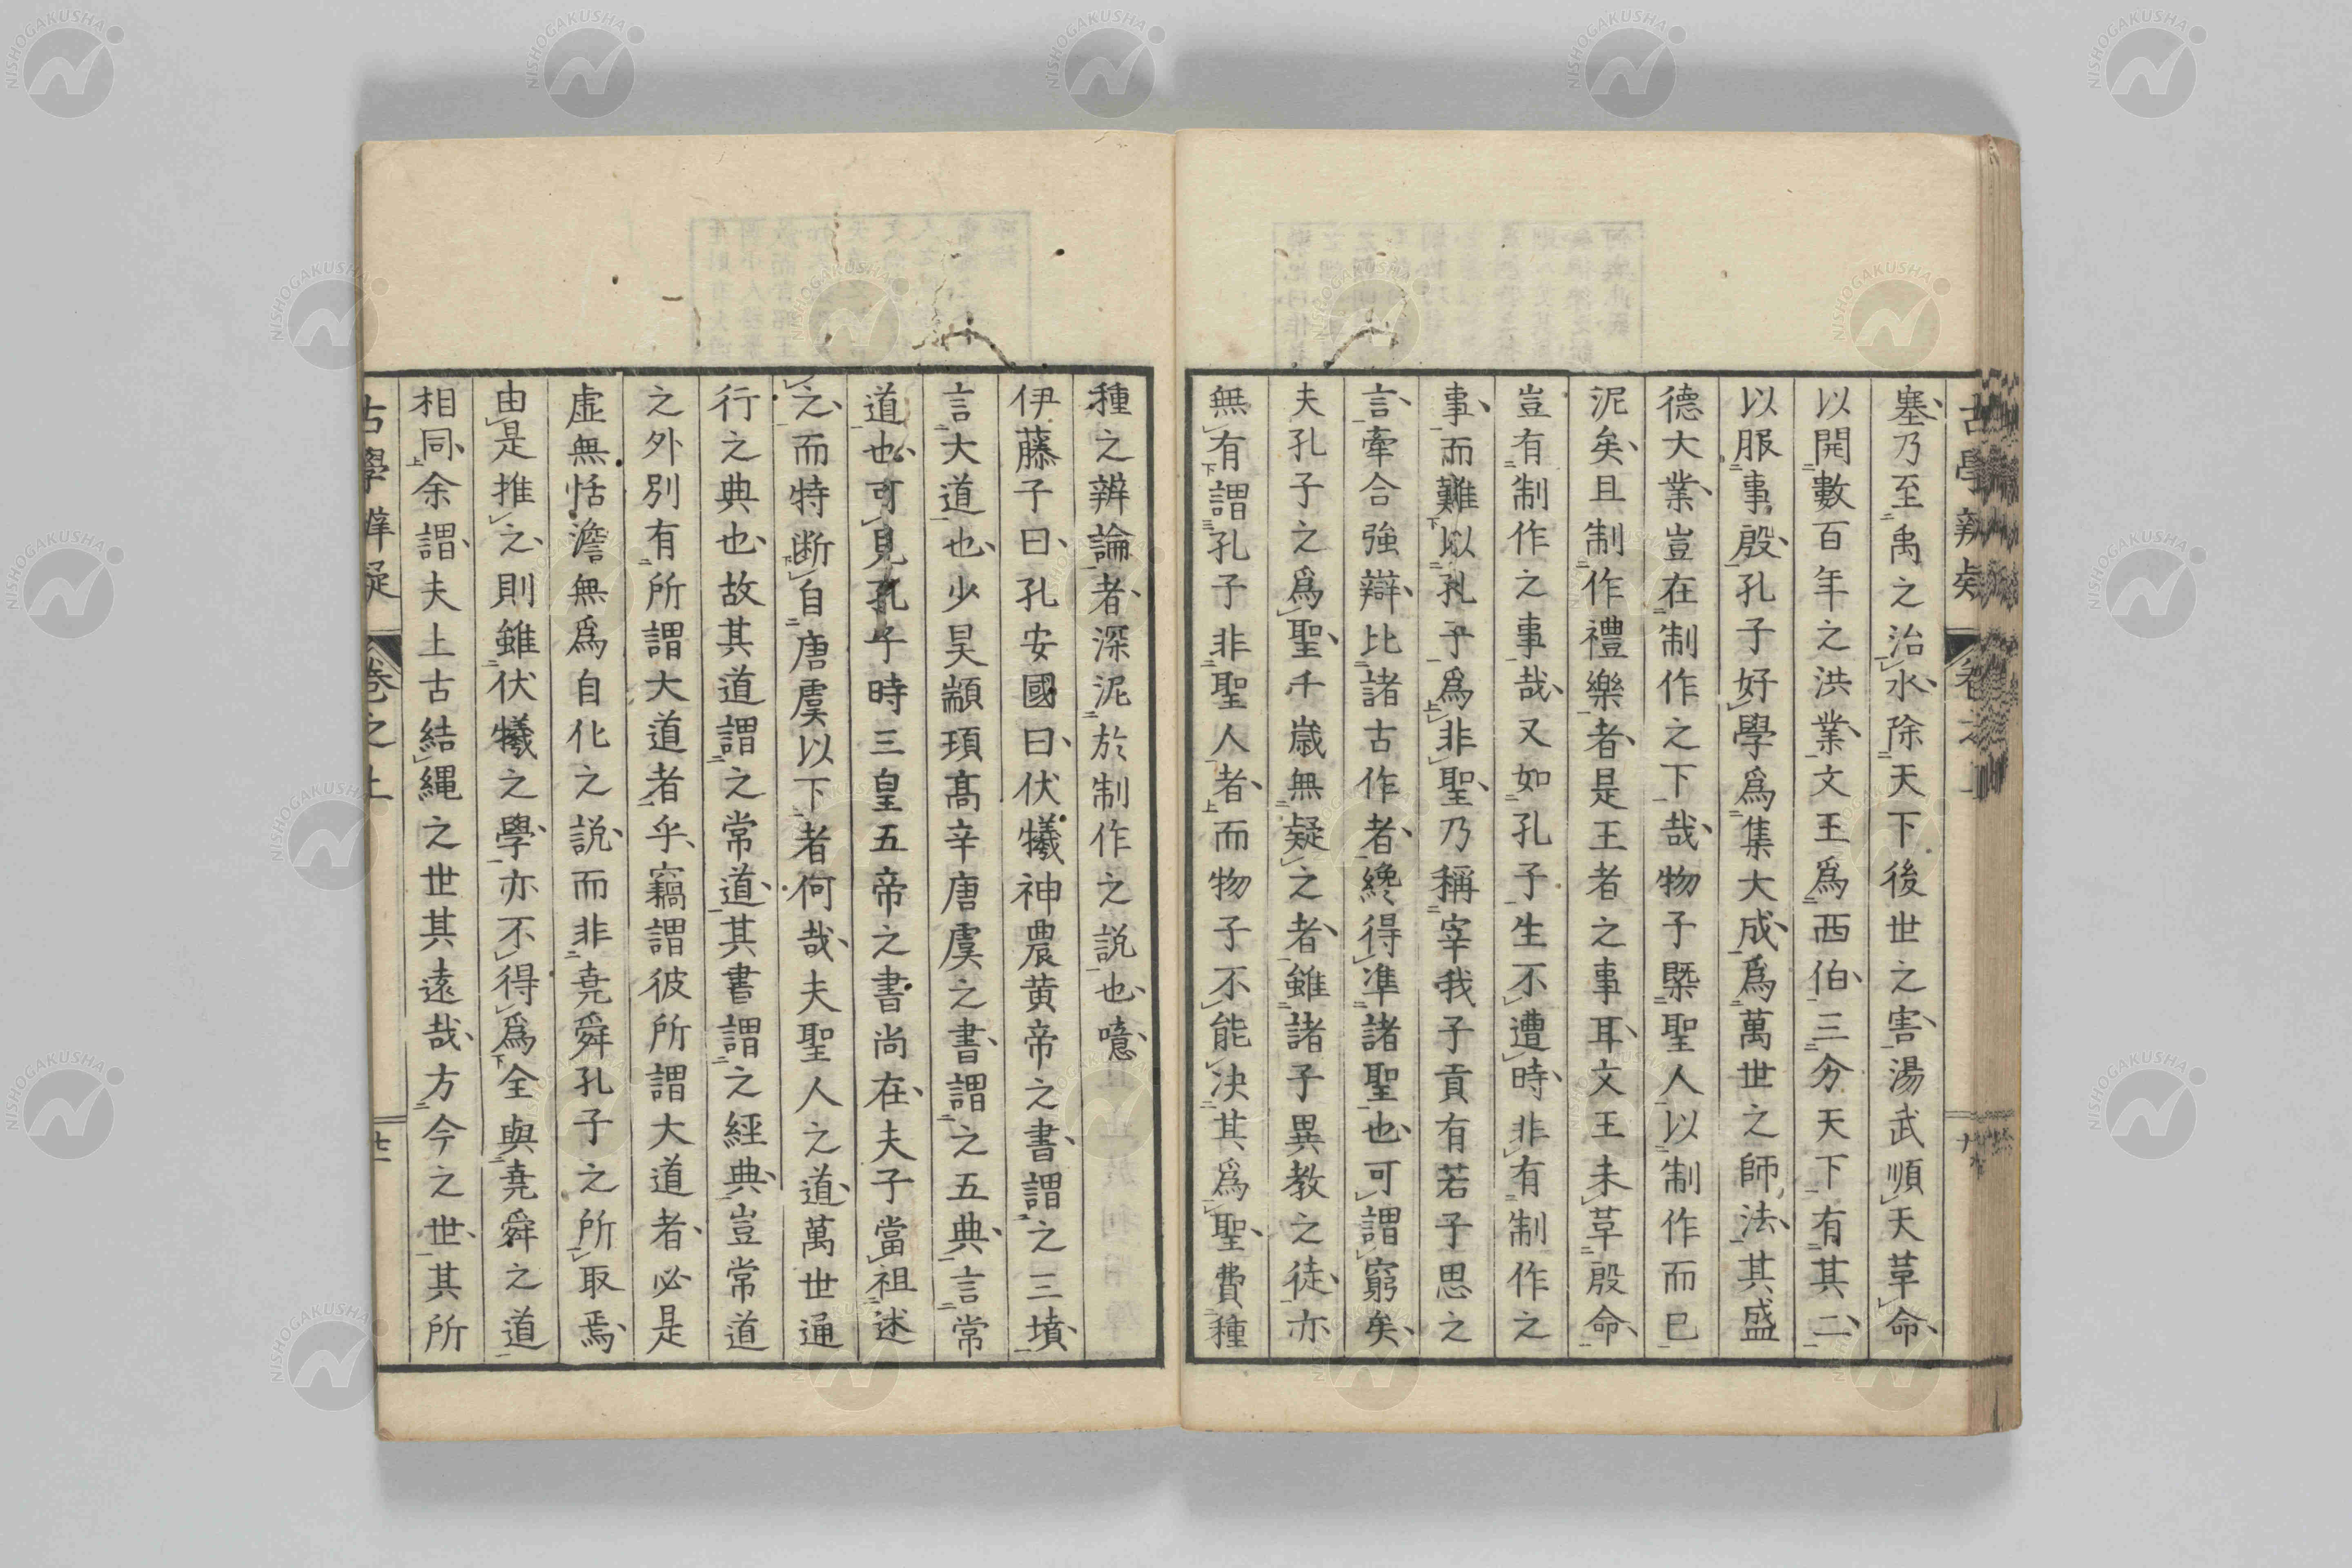 塞乃至禹之治水除天下後世之害湯武順天草命
以開數百年之洪業文王爲西伯三分天下有其二
以服事殷孔子好學爲集大成爲萬世之師法其盛
德大業豈在制作之下哉物子槩聖人以制作而已
泥矣且制作禮樂者是王者之事耳文王未草殷命
豈有制作之事哉又如孔子生不遭時非有制作之
事而難以孔子爲非聖乃稱宰我子貢有若子思之
言牽合強辯比諸古作者纔得準諸聖也可謂窮矣
夫孔子之爲聖千歳無疑之者雖諸子異教之徒亦
無有謂孔子非聖人者而物子不能决其爲聖費種
種之辨論者深泥於制作之説也噫
伊藤子曰孔安國曰伏犧神農黄帝之書謂之三墳
言大道也少昊顓頊髙辛唐虞之書謂之五典言常
道也可見孔子時三皇五帝之書尚在夫子當祖述
之而特断自唐虞以下者何哉夫聖人之道萬世通
行之典也故其道謂之常道其書謂之經典豈常道
之外別有所謂大道者乎竊謂彼所謂大道者必是
虚無恬澹無爲自化之説而非堯舜孔子之所取焉
由是推之則雖伏犧之學亦不得爲全與堯舜之道
相同余謂夫上古結縄之世其遠哉方今之世其所
古學辨疑 卷之上 廿
NISHOGAKUSHA